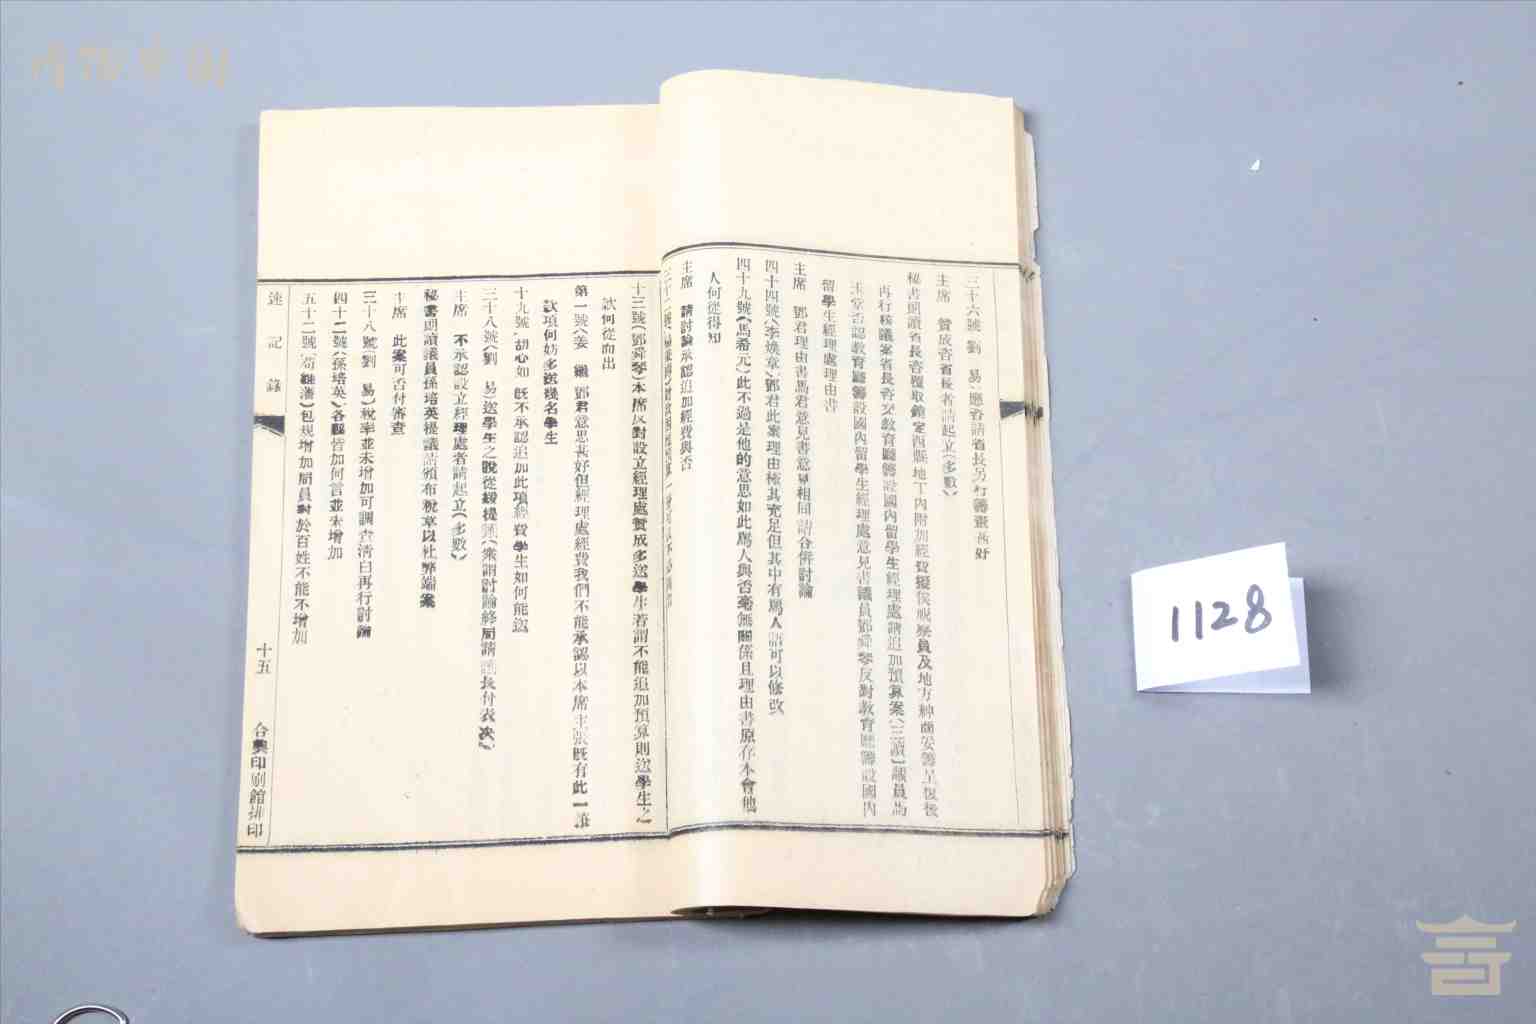 三十六號 劉 易 應咨請省長另行籌畫爲好
主席 贊成咨省長者請起立(多數)
秘書朗讀省長咨覆取銷定西縣地丁內附加經費擬俟視察員及地方紳商妥籌呈復後
再行核議案省長咨交教育廳籌設國內留學生經理處請追加預算案(三讀)議員馬
主堂否認教育廳籌設國內留學生經理處意見書議員鄧舜琴反對教育廳籌設國內
留學生經理處理由書
主席 鄧君理由書馬君意見書意見相同請合併討論
四十四號(李煥章)鄧君此案理由極其充足但其中有爲人語可以修改
四十九號(馬希元)此不過是他的意思如此爲人與否毫無關係且理由書原存本會他
人何從得知
主席 請討論承認追加經費與否
十三號(鄧舜琴)本席反對設立經理處贊成多送學生若謂不能追加預算則送學生之
欵何從而出
第一號(姜 繼 鄧君意思甚好但經理處經費我們不能承認以本席主張既有此一筆
欵項何妨多送幾名學生
十九號 胡心如 既不承認追加此項經費學生如何能送
三十八號(劉 易)送學生之說從緩提議(衆謂討論終局請議長付表決)
主席 不承認設立經理處者請起立(多數)
秘書朗讀議員孫培英提議請頒布稅章以杜弊端案
主席 此案可否付審查
三十八號(劉 易)稅率並未增加可調查清白再行討論
四十二號(孫培英)各縣皆加何言並未增加
五十二號(荀繼潘)包規增加局員對於百姓不能不增加
速記錄
十五
合興印刷館排印
1128